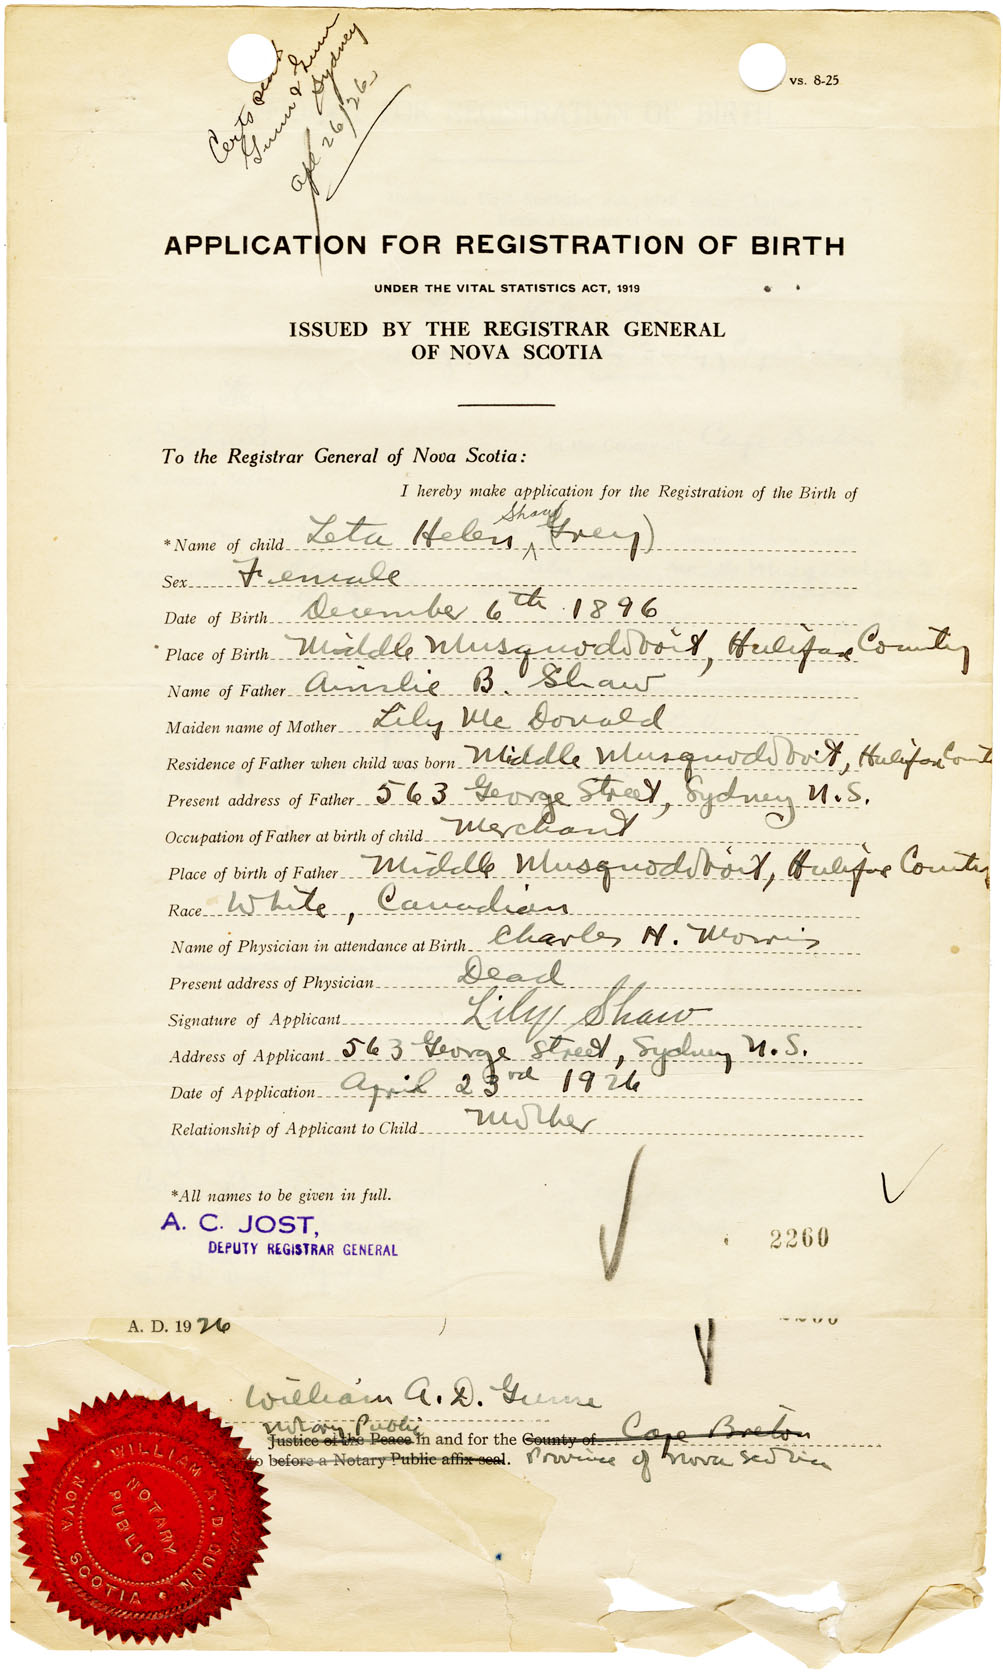 Certs sent
Gunn & Gunn
Sydney
Apl 26/26
vs. 8-25
APPLICATION FOR REGISTRATION OF BIRTH
UNDER THE VITAL STATISTICS ACT, 1919
ISSUED BY THE REGISTRAR GENERAL
OF NOVA SCOTIA
To the Registrar General of Nova Scotia:
I hereby make application for the Registration of the Birth of
Shaw
*Name of child Leta Helen ^ (Grey)
Sex Female
Date of Birth December 6th 1896
Place of Birth Middle Musquodoboit, Halifax County
Name of Father Ainslie B. Shaw
Maiden name of Mother Lily Mc Donald
Residence of Father when child was born Middle Musquodoboit, Halifax County
Present address of Father 563 George Street, Sydney N.S.
Occupation of Father at birth of child Merchant
Place of birth of Father Middle Musquodoboit, Halifax County
Race White, Canadian
Name of Physician in attendance at Birth Charles H. Morris
Present address of Physician Dead
Signature of Applicant Lily Shaw
Address of Applicant 563 George Street, Sydney N.S.
Date of Application April 23rd 1926
Relationship of Applicant to Child Mother
*All names to be given in full.
A. C. JOST,
DEPUTY REGISTRAR GENERAL
2260
A. D. 1926
William A. D. Gunn
Notary Public
Justice of the Peace in and for the County of Cape Breton
to before a Notary Public affix seal. Province of Nova Scotia
WILLIAM A. D. GUNN
NOTARY PUBLIC
NOVA SCOTIA